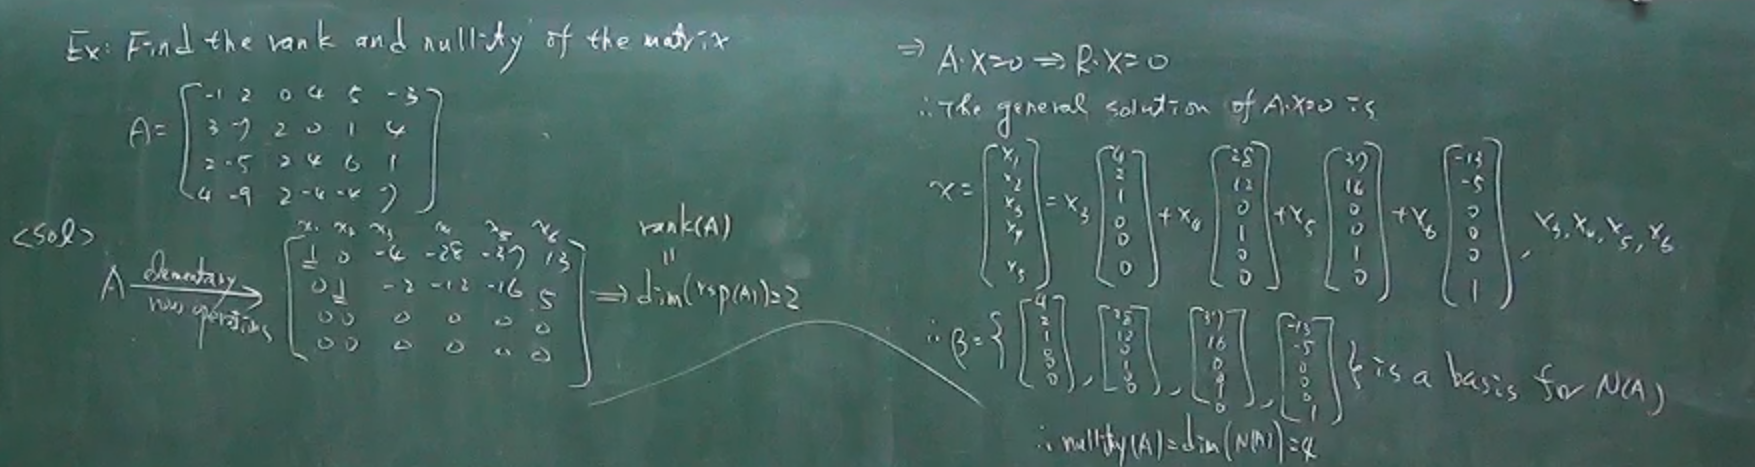 Ex: Find the rank and nullity of the matrix
A= [ -1 2 0 4 5 -3
3 -7 2 0 1 4
2 -5 2 4 6 1
4 -9 2 -4 -4 7 ]
<sol>
x₁ x₂ x₃ x₄ x₅ x₆
A elementary row operations → [ 1 0 -4 -28 -37 13
0 1 -2 -12 -16 5
0 0 0 0 0 0
0 0 0 0 0 0 ]
rank(A)
||
⇒ dim(rsp(A))=2
⇒ A·X=0 ⇒ R·X=0
∴ The general solution of A·X=0 is
x = [x₁ x₂ x₃ x₄ x₅] = x₃ [4 2 1 0 0 0] + x₄ [28 12 0 1 0 0] + x₅ [37 16 0 0 1 0] + x₆ [-13 -5 0 0 0 1], x₃, x₄, x₅, x₆
∴ β = { [4 2 1 0 0], [28 12 0 1 0 0], [37 16 0 0 1 0], [-13 -5 0 0 0 1] } is a basis for N(A)
∴ nullity(A)=dim(N(A))=4